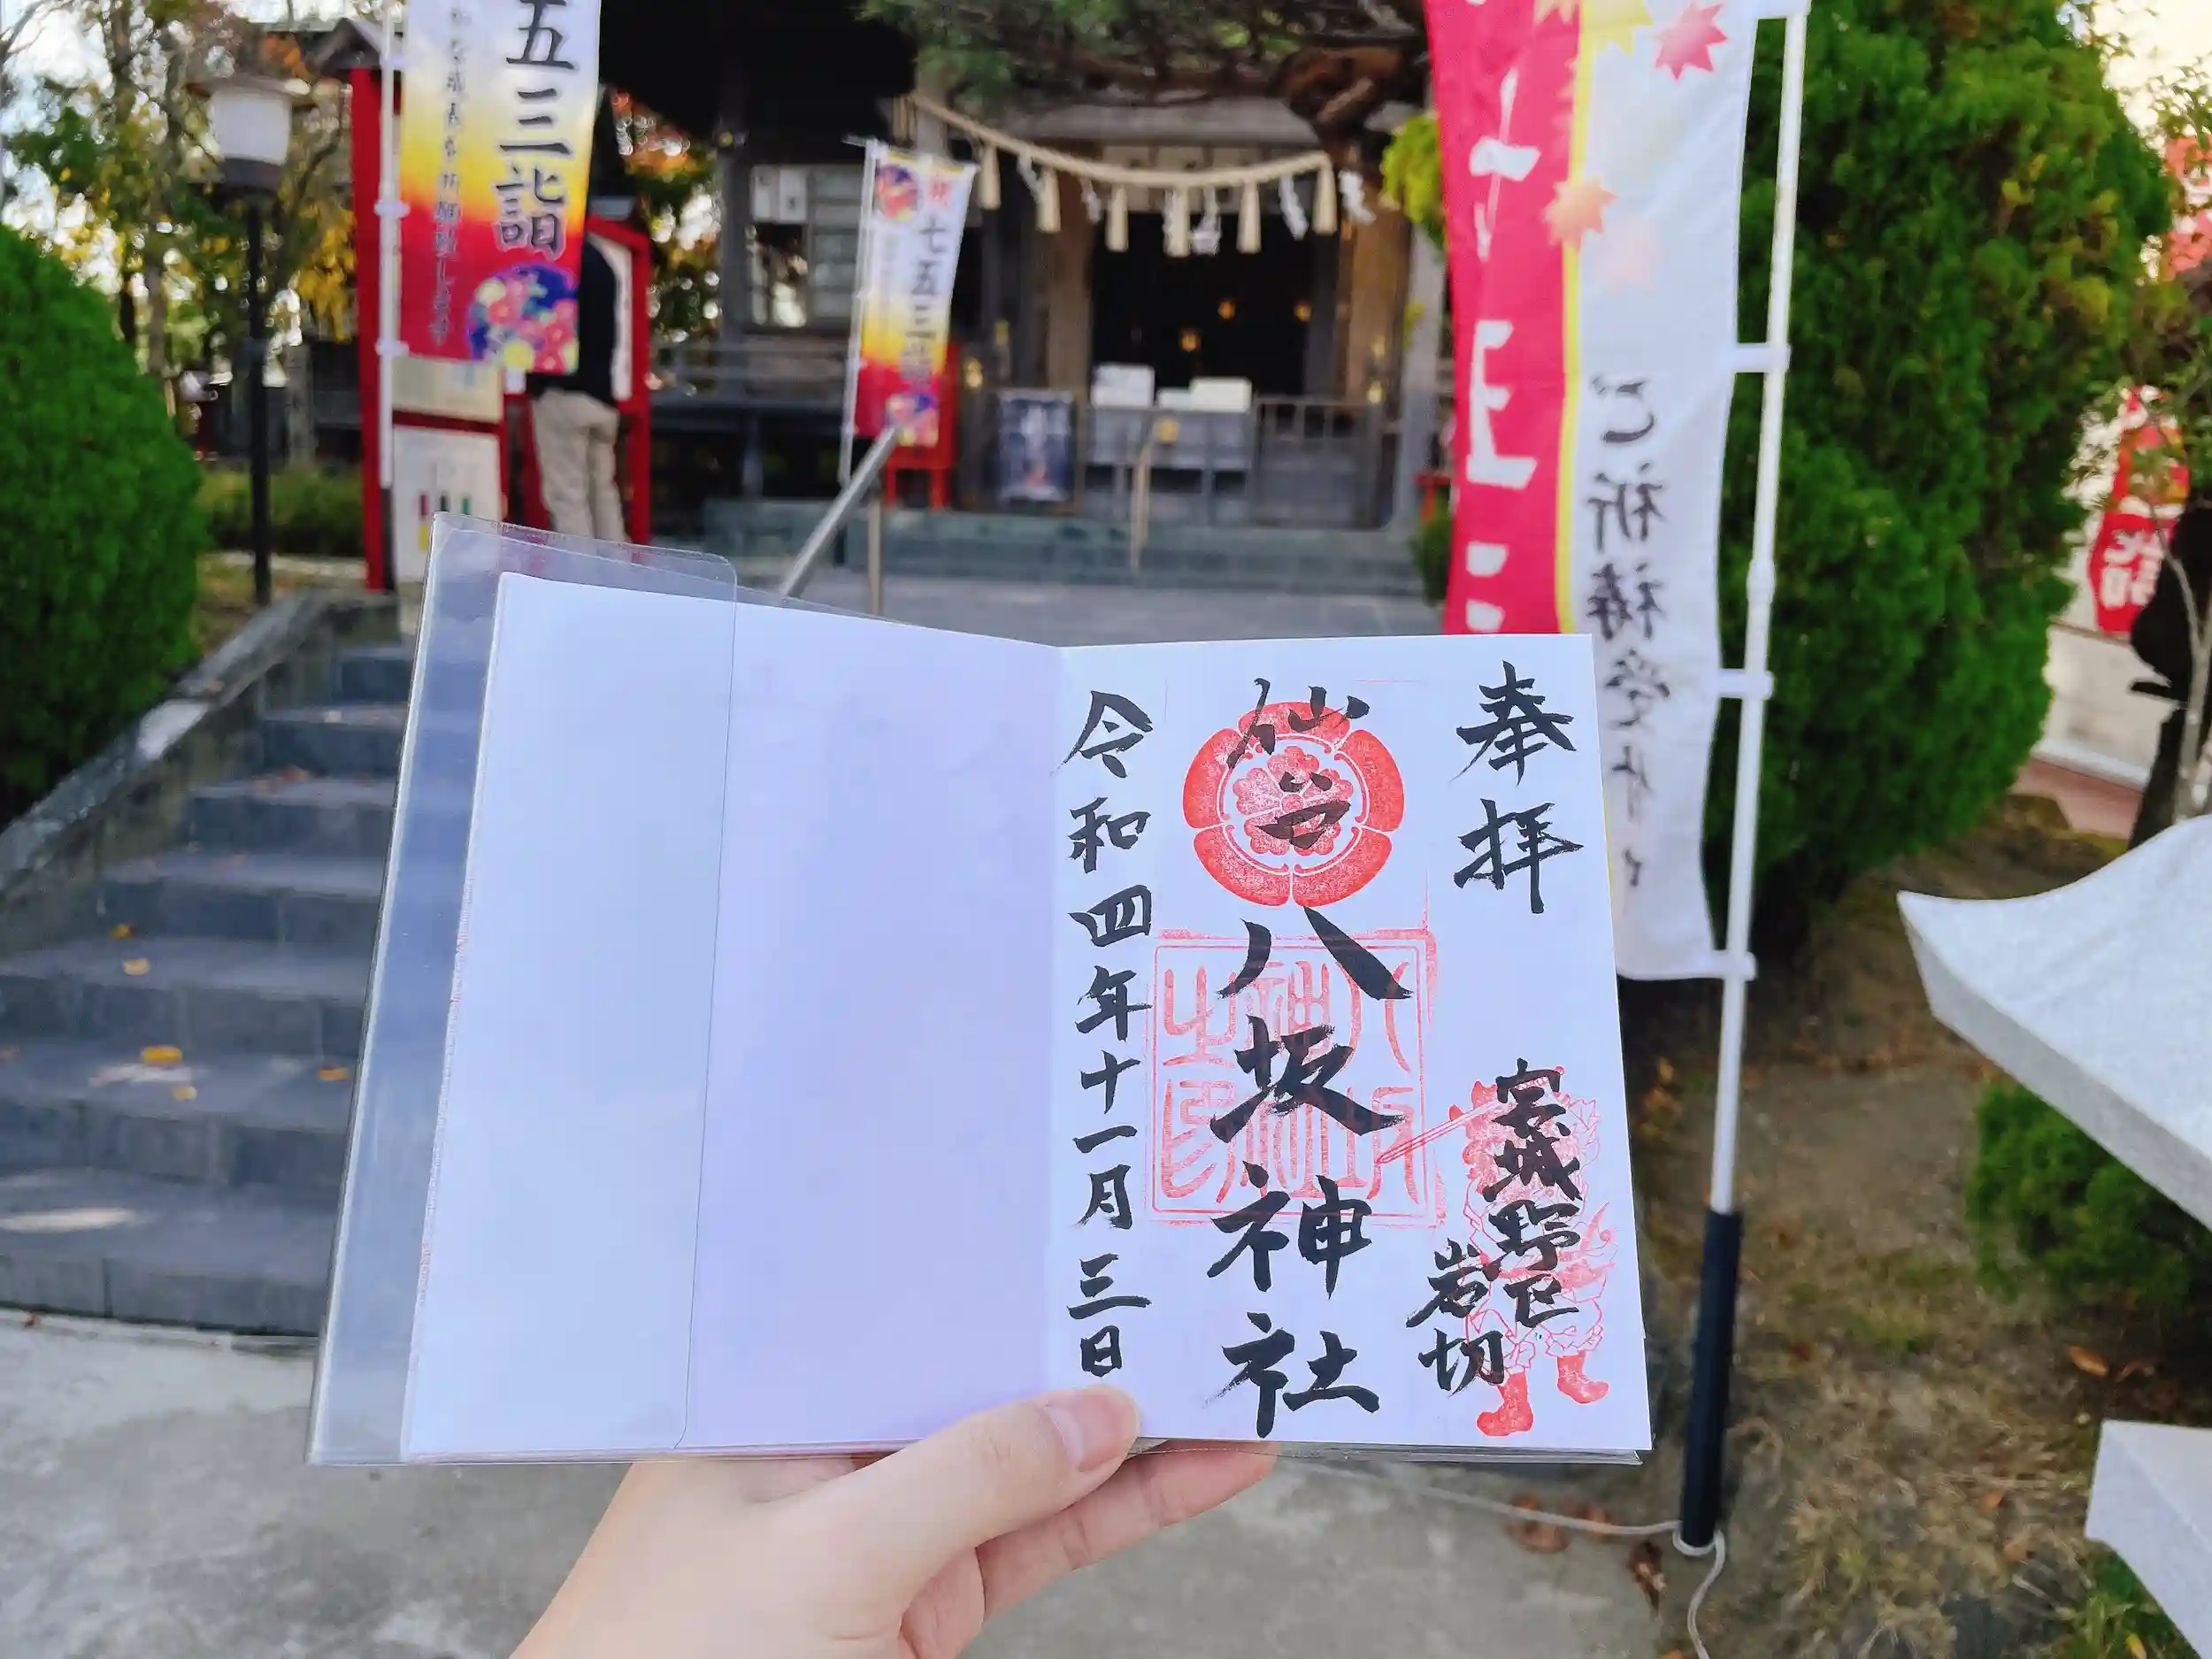 奉拝
宮城野区
岩切
仙台
八坂神社
令和四年十一月三日
五三詣
七五三詣
ご祈祷受付中